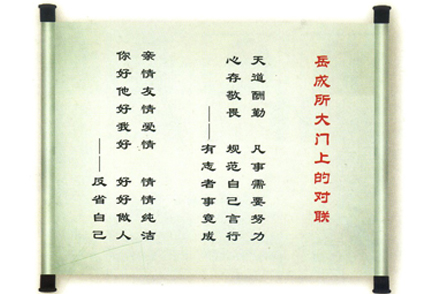 岳成所大门上的对联
天道酬勤 凡事需要努力
心存敬畏 规范自己言行
——有志者事竟成
亲情友情爱情 情情纯洁
你好他好我好 好好做人
——反省自己